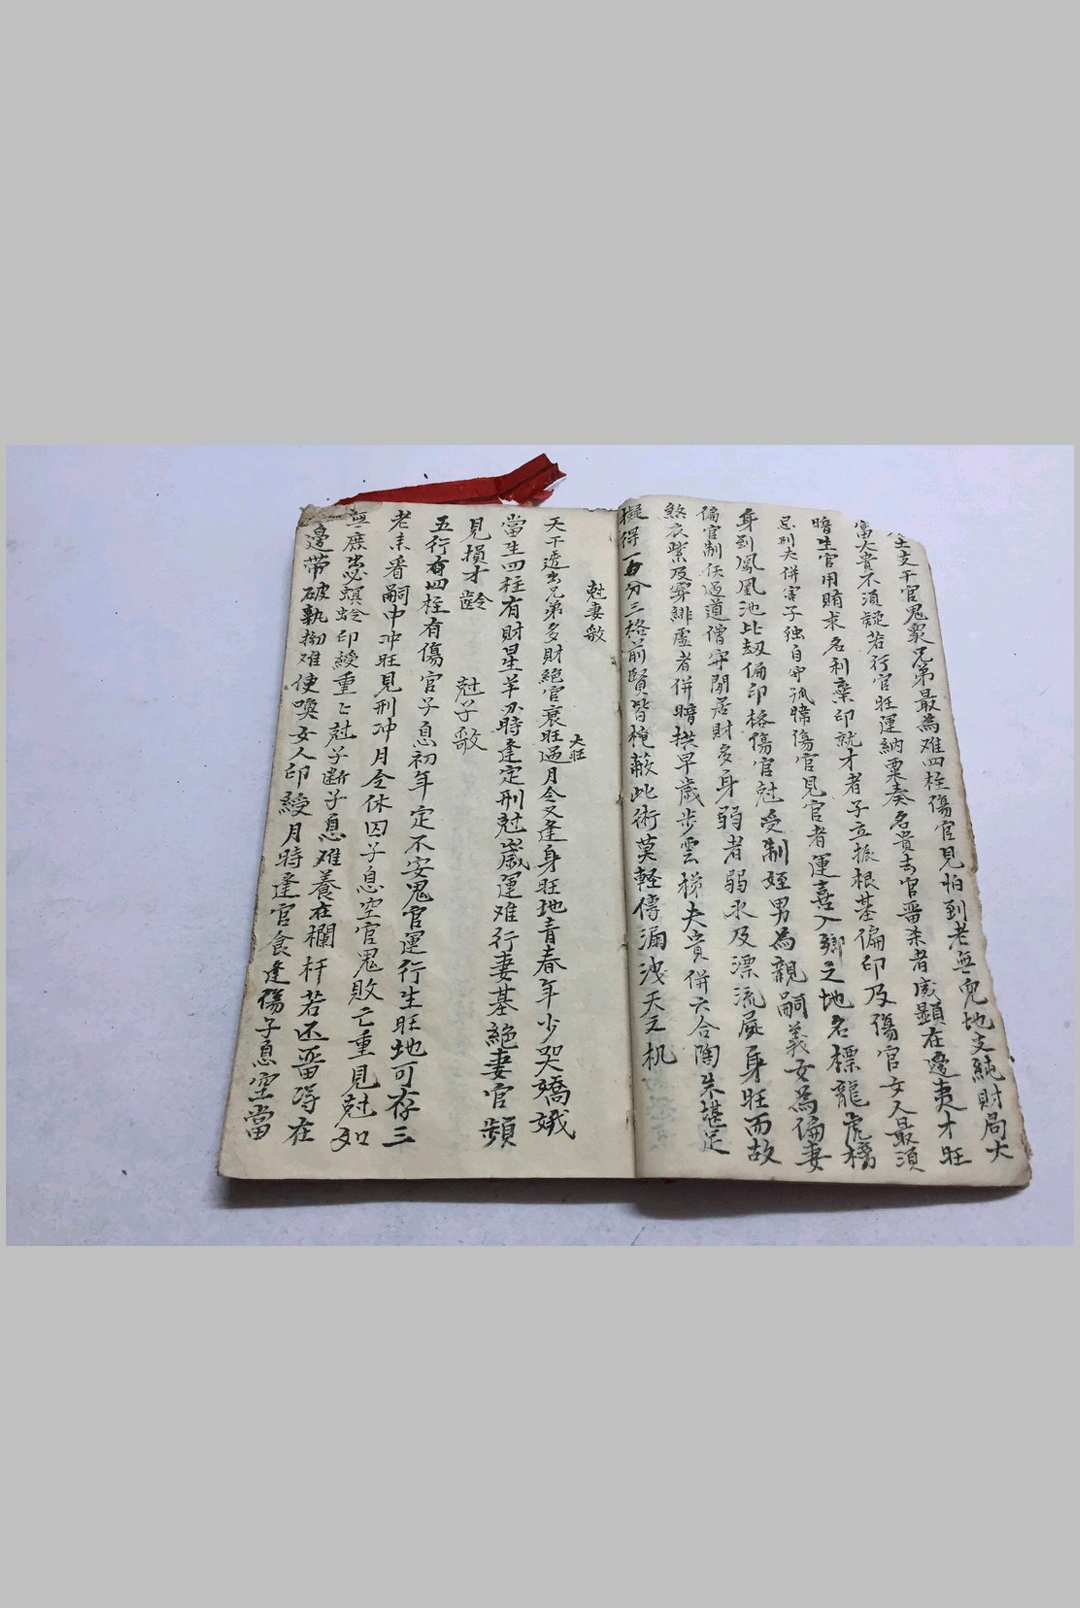 生支干官鬼衆兄弟最為难四柱傷官見怕到老無兒地支純財局大
富大貴不須疑若行官旺運納粟奏名貴去官畄杀者威顯在邊夷才旺
暗生官用賄求名利棄印就才者子立振根基偏印及傷官女人最須
忌刑夫併害子独自守孤幃傷官見官者運喜入鄉之地名標龍虎榜
身到鳳凰池比刼偏印格傷官尅受制姪男為親嗣義女為偏妻
偏官制伏過道僧守閑居財多身弱者弱水及漂流屍身旺而故
煞衣紫及穿緋虛者併暗拱早歲步雲梯夫貴併六合陶朱堪足
擬得一百分三格前賢皆掩蔽此術莫軽傳漏洩天之机
尅妻歌
天干透出兄弟多財絕官衰旺過月令又逢身旺地青春年少哭嬌娥
大旺
當生四柱有財星羊刃時逢定刑尅歲運难行妻基絕妻官頻
見損才齡
尅子歌
五行有四柱有傷官子息初年定不安鬼官運行生旺地可存三
老来看嗣中冲旺見刑冲月令休囚子息空官鬼敗亡重見尅如
無庶出螟蛉印綬重〻尅子断子息难養在欄杆若还畄得在
邊帶破執拗难使喚女人印綬月時逢官食逢傷子息空當